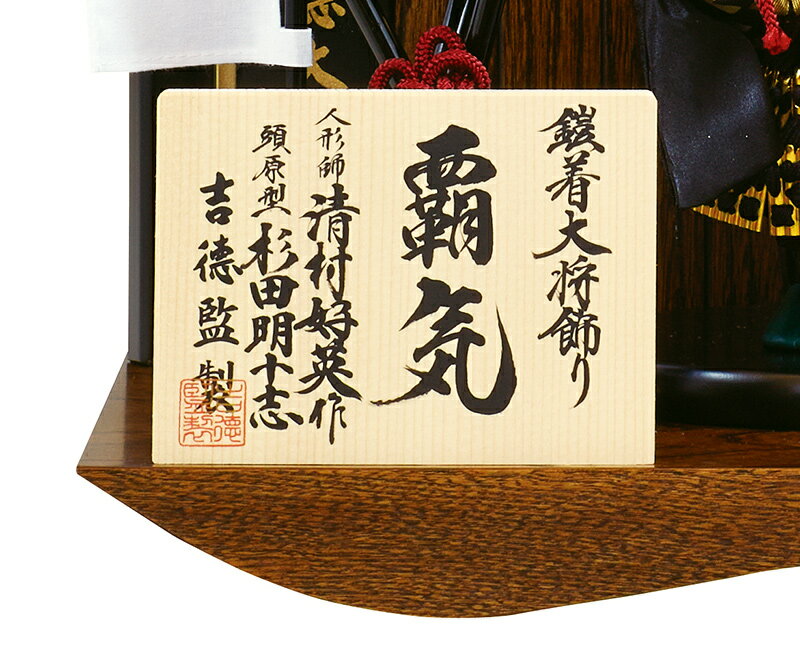 鎧着大将飾り
覇気
人形師 清村好英作
頭原型 杉田明十志
吉德監製